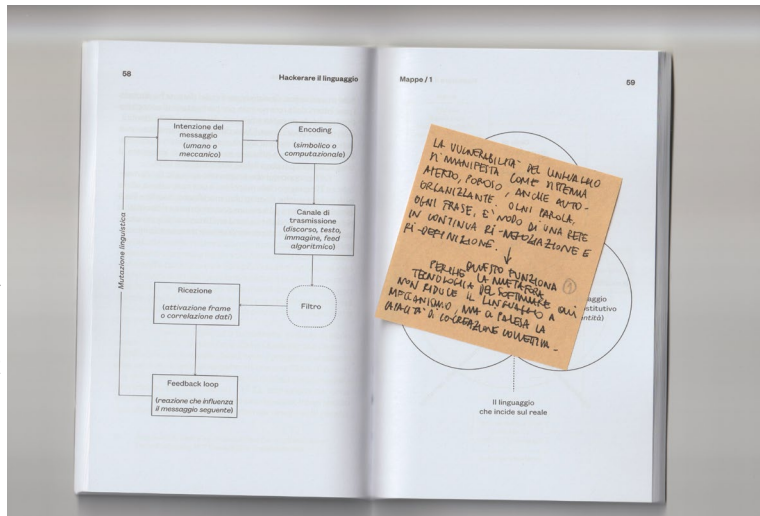 58
Hackerare il linguaggio
Intenzione del
messaggio
(umano o
meccanico)
Encoding
(simbolico o
computazionale)
Canale di
trasmissione
(discorso, testo,
immagine, feed
algoritmico)
Filtro
Ricezione
(attivazione frame
o correlazione dati)
Feedback loop
(reazione che influenza
il messaggio seguente)
Mutazione linguistica
Mappe / 1
59
LA VULNERABILITÀ DEL LINGUAGGIO
SI MANIFESTA COME SISTEMA
APERTO, POROSO, ANCHE AUTO-
ORGANIZZANTE. OGNI PAROLA,
OGNI FRASE, E' NODO DI UNA RETE
IN CONTINUA RI-NEGOZIAZIONE E
RI-DEFINIZIONE. ↓
QUESTO FUNZIONA
PERCHÉ LA METAFORA
TECNOLOGIA DEL SOFTWARE
NON RIDUCE IL LINGUAGGIO A UN
MECCANISMO, MA CI PALESA LA
CAPACITÀ DI CO-CREAZIONE COLLETTIVA.
aggio
stitutivo
ntità)
Il linguaggio
che incide sul reale